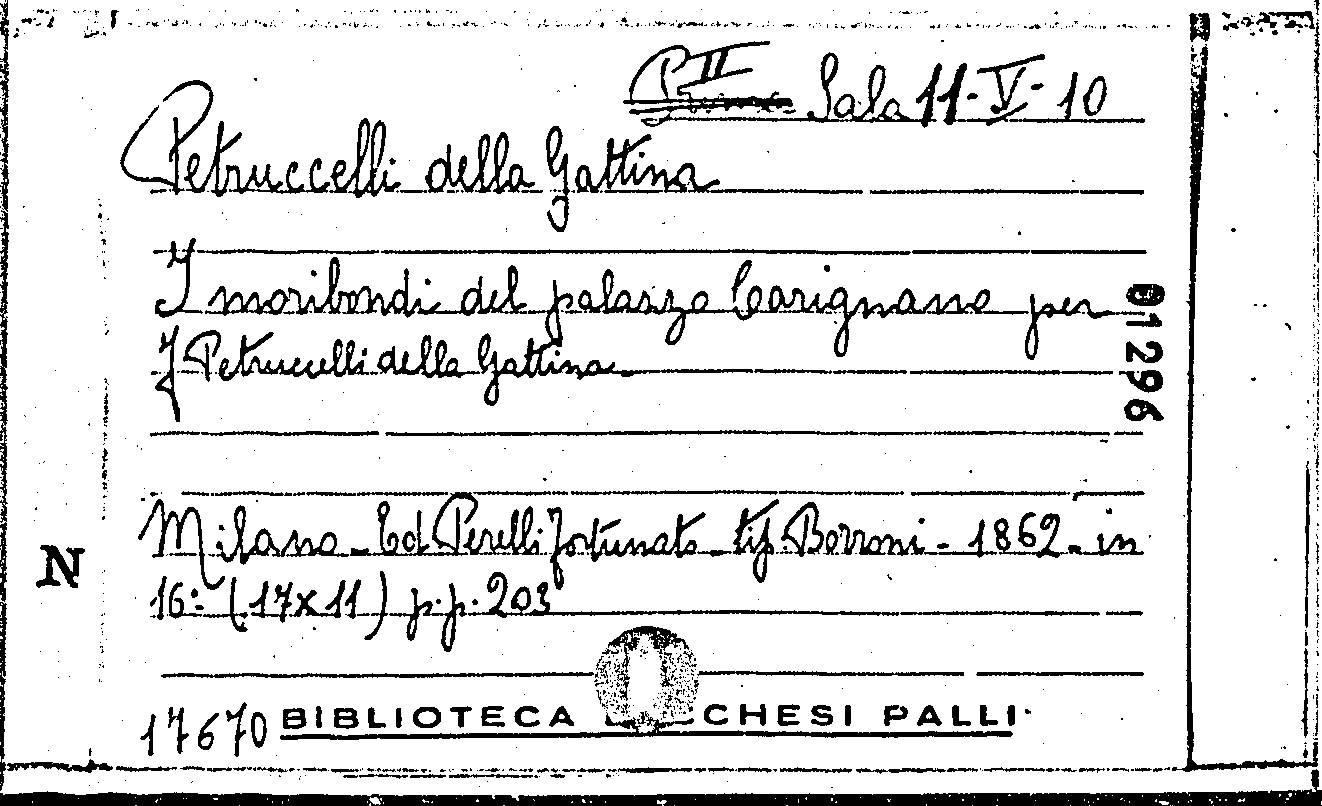 II Sala 11-V-10
Petruccelli della Gattina
I moribondi del palazzo Carignano per
F Petruccelli della Gattina.
01296
Milano - Ed. Perelli Fortunato - tip. Borroni - 1862 - in
N
16: (17x11) p.p. 203
17670 BIBLIOTECA CHESI PALLI